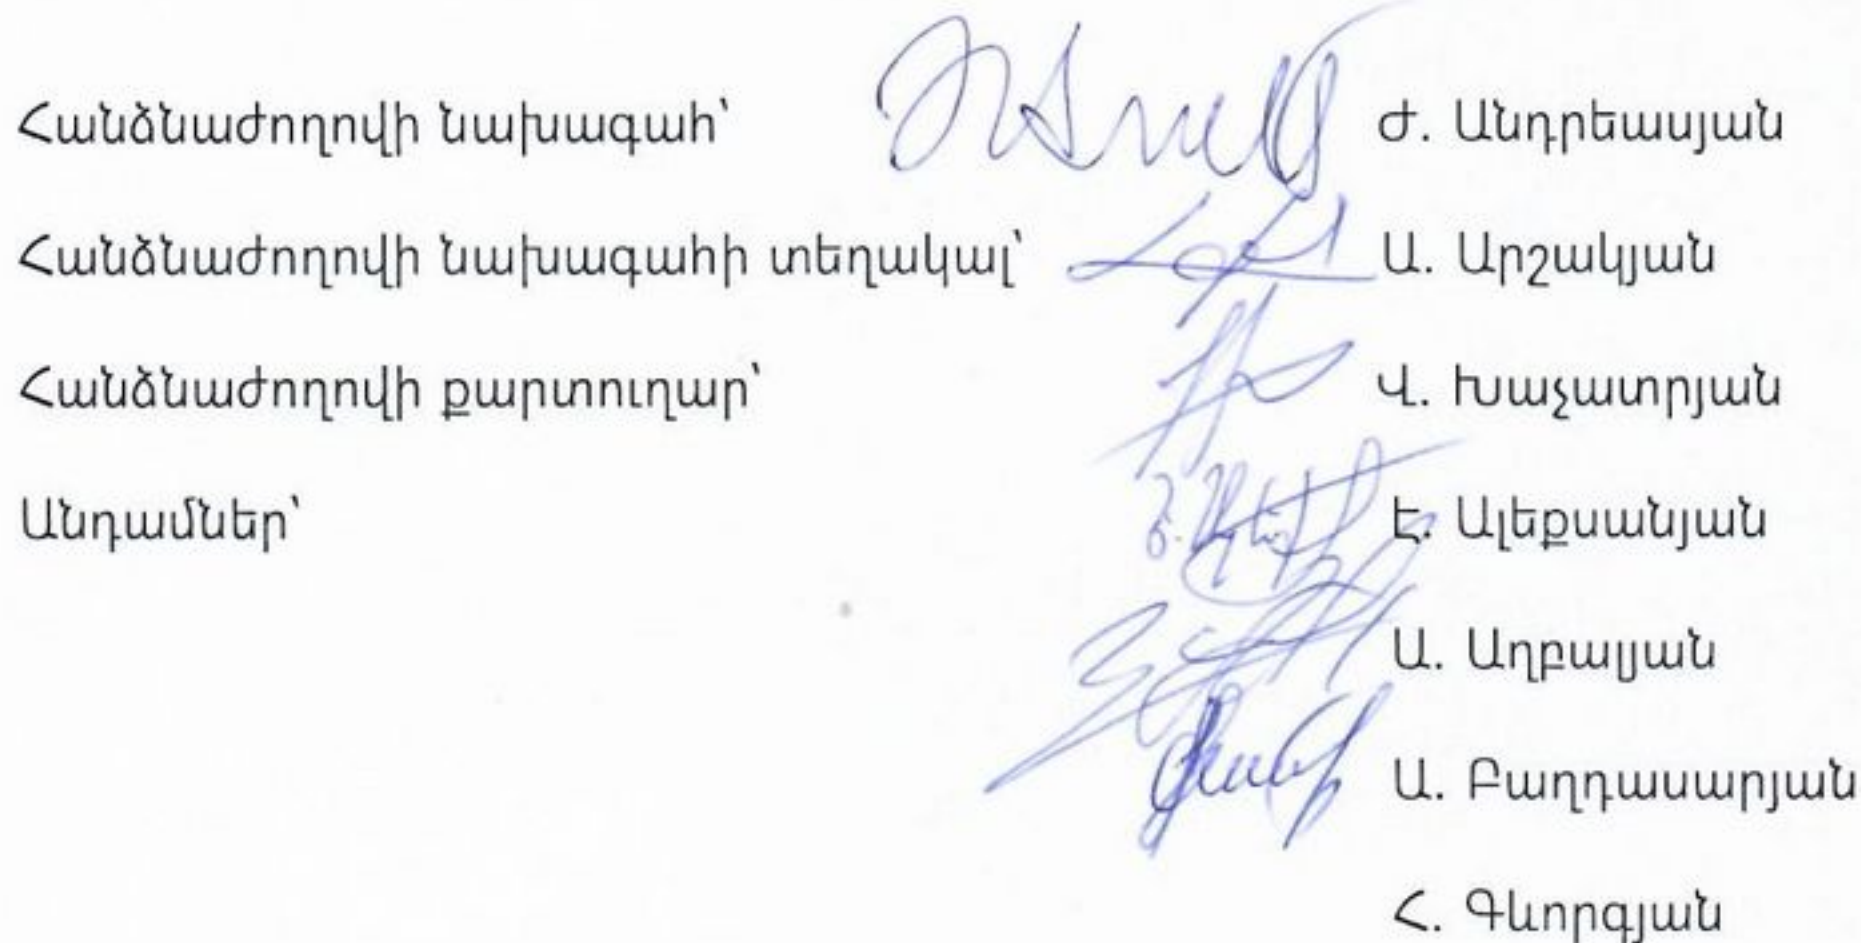 Հանձնաժողովի նախագահ՝ Ժ. Անդրեասյան
Հանձնաժողովի նախագահի տեղակալ՝ Ա. Արշակյան
Հանձնաժողովի քարտուղար՝ Վ. Խաչատրյան
Անդամներ՝ Է. Ալեքսանյան
Ա. Աղբալյան
Ա. Բաղդասարյան
Հ. Գևորգյան